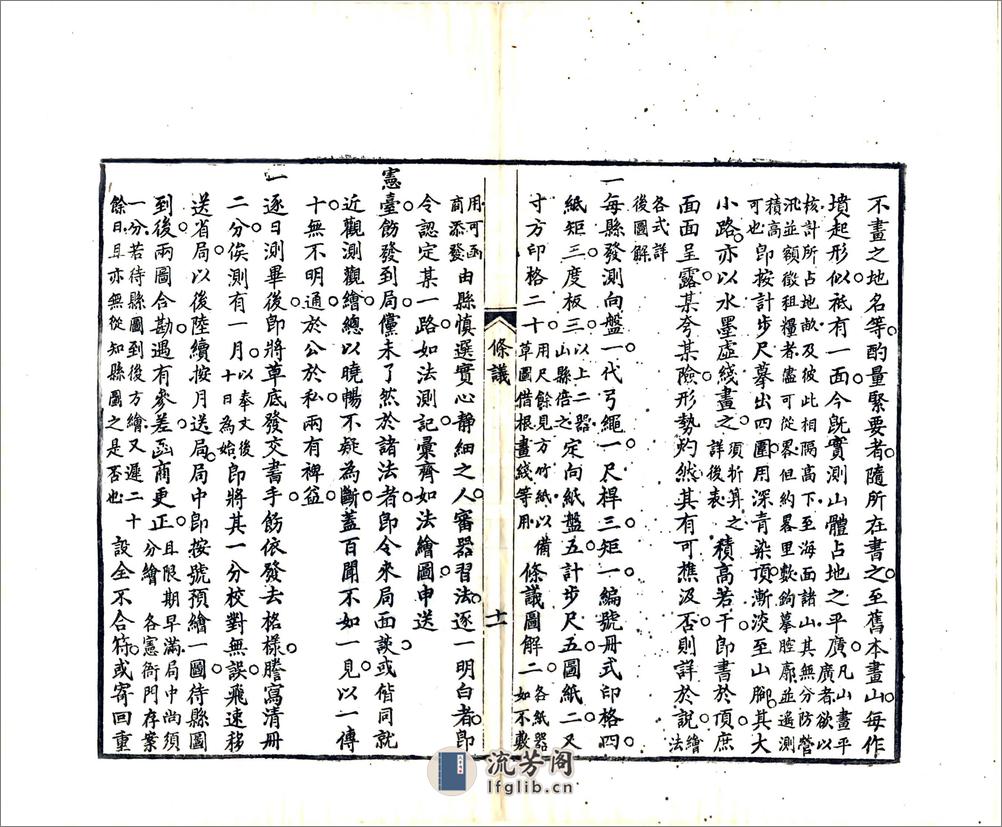 不畫之地名等酌量緊要者隨所在書之至舊本畫山每作
墳起形似祇有一面今既實測山體占地之平廣凡山畫平廣者欲以
核計所占地畝及彼此相隔高下至海面諸山其無分防營
汛並額徵租糧者儘可從畧但約畧里數鉤摹腔廓並遙測
積高可也即按計步尺摹出四圍用深青染頂漸淡至山腳其大
小路亦以水墨虛綫畫之須折算之詳後表積高若干即書於頂庶
面面呈露某夸某險形勢灼然其有可樵汲否則詳於說繪法
各式詳後圖解
一每縣發測向盤一代弓繩一尺桿三矩一編號冊式印格四
紙矩三度板三以上二器山縣倍之定向紙盤五計步尺五圖紙二又
寸方印格二十用尺餘見方竹紙以備草圖借根畫綫等用條議圖解二各紙器如不敷
條議
十一
用可函商添發由縣慎選實心靜細之人審器習法逐一明白者即
令認定某一路如法測記彙齊如法繪圖申送
憲臺飭發到局儻未了然於諸法者即令來局面談或偕同就
近觀測觀繪總以曉暢不疑為斷蓋百聞不如一見以一傳
十無不明通於公於私兩有裨益
一逐日測畢後即將草底發交書手飭依發去格樣謄寫清冊
二分俟測有一月以奉文後十日為始即將其一分校對無誤飛速移
送省局以後陸續按月送局局中即按號預繪一圖待縣圖
到後兩圖合勘遇有參差函商更正且限期早滿局中尚須分繪各憲衙門存案
一分若待縣圖到後方繪又遲二十餘日且亦無從知縣圖之是否也設全不合符或寄回重
流芳阁
lfglib.cn